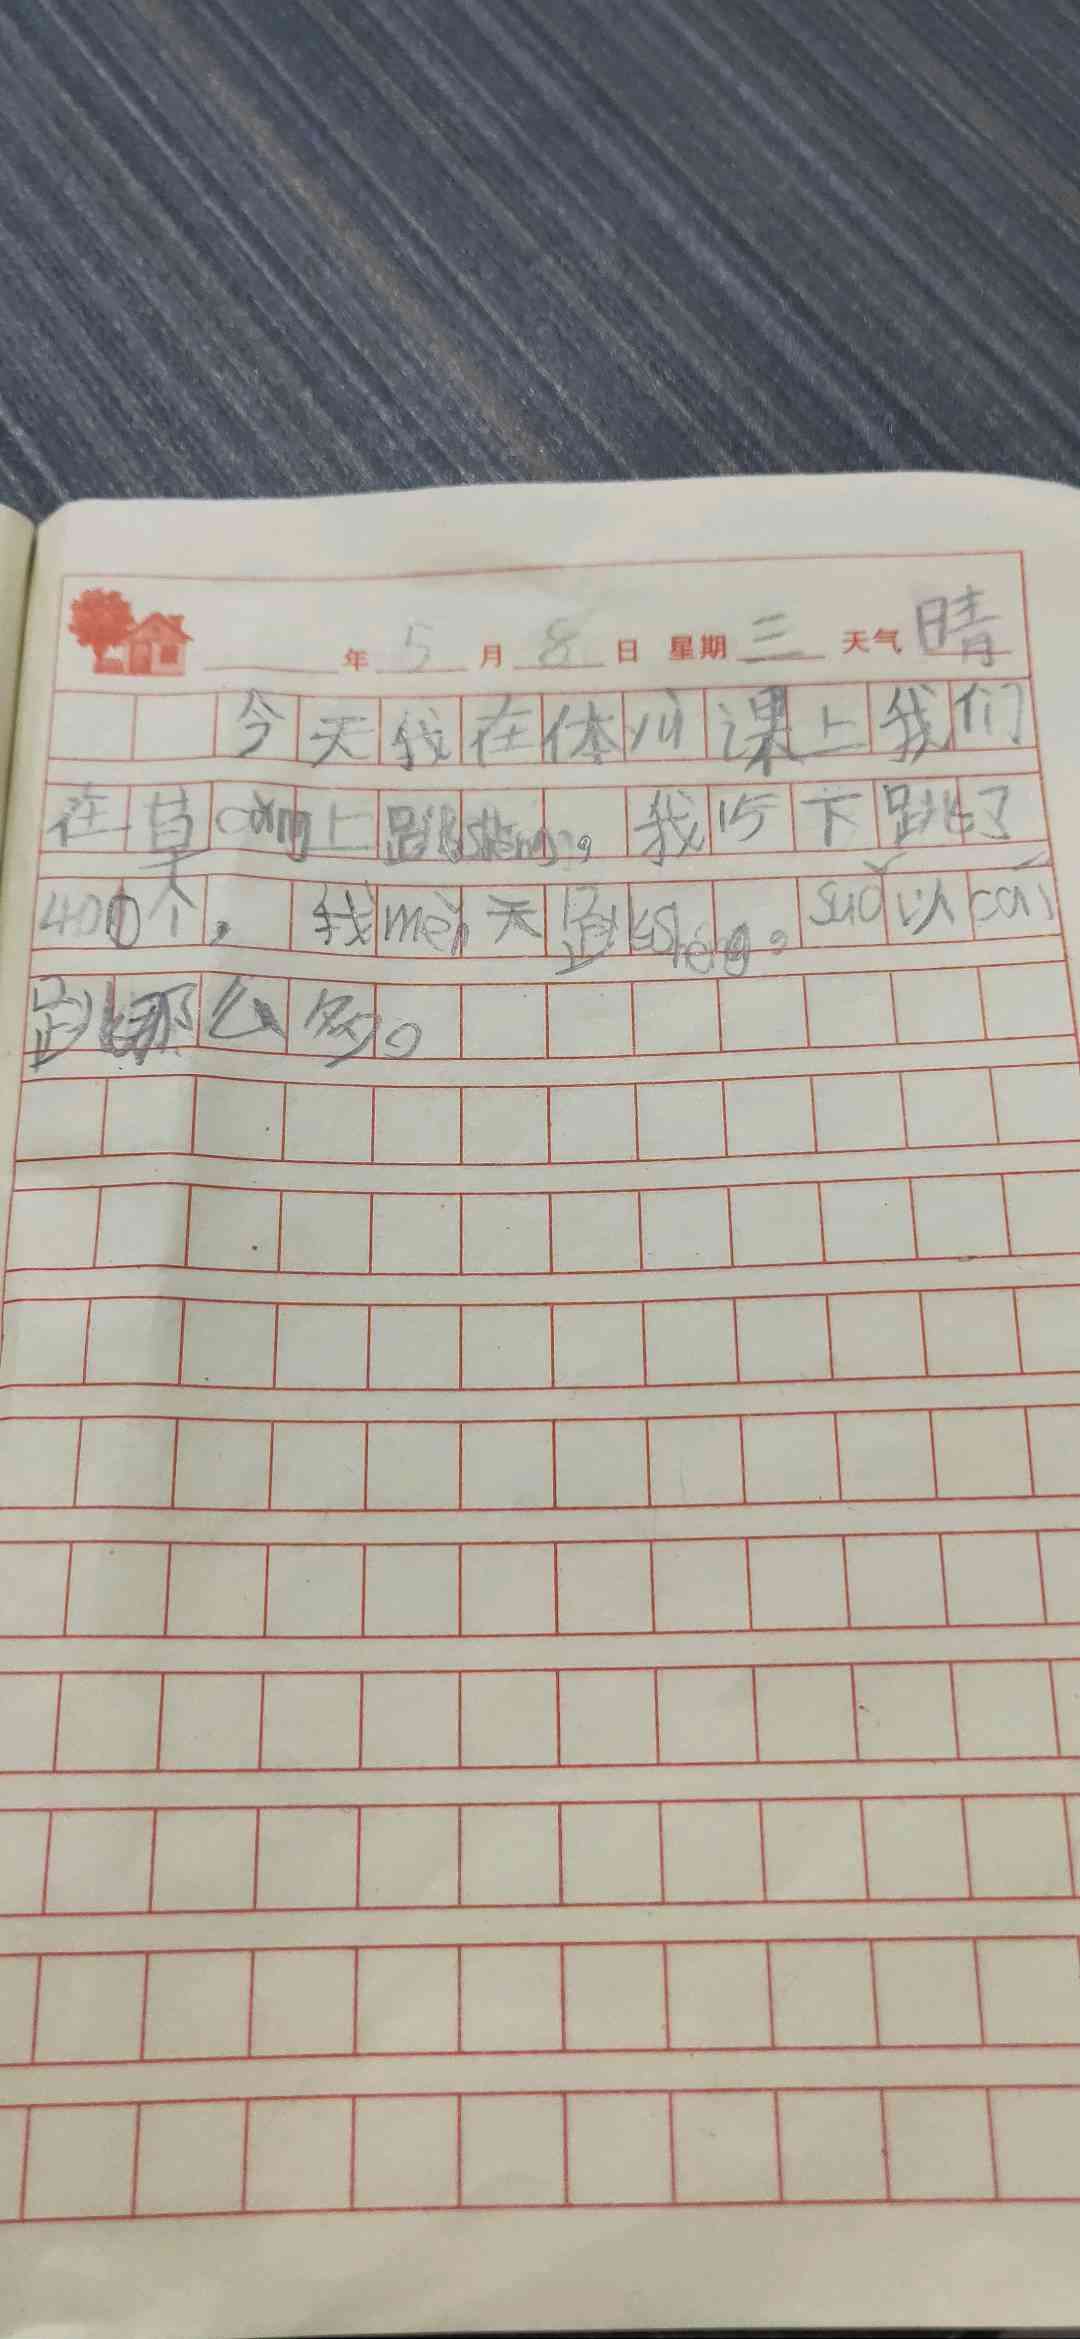 年 5 月 8 日 星期 三 天气 晴
今天我在体川课上我们
在草 上跳shéng。我15下跳了
400个,我měi天跳shéng。suǒ以cái
跳那么多。